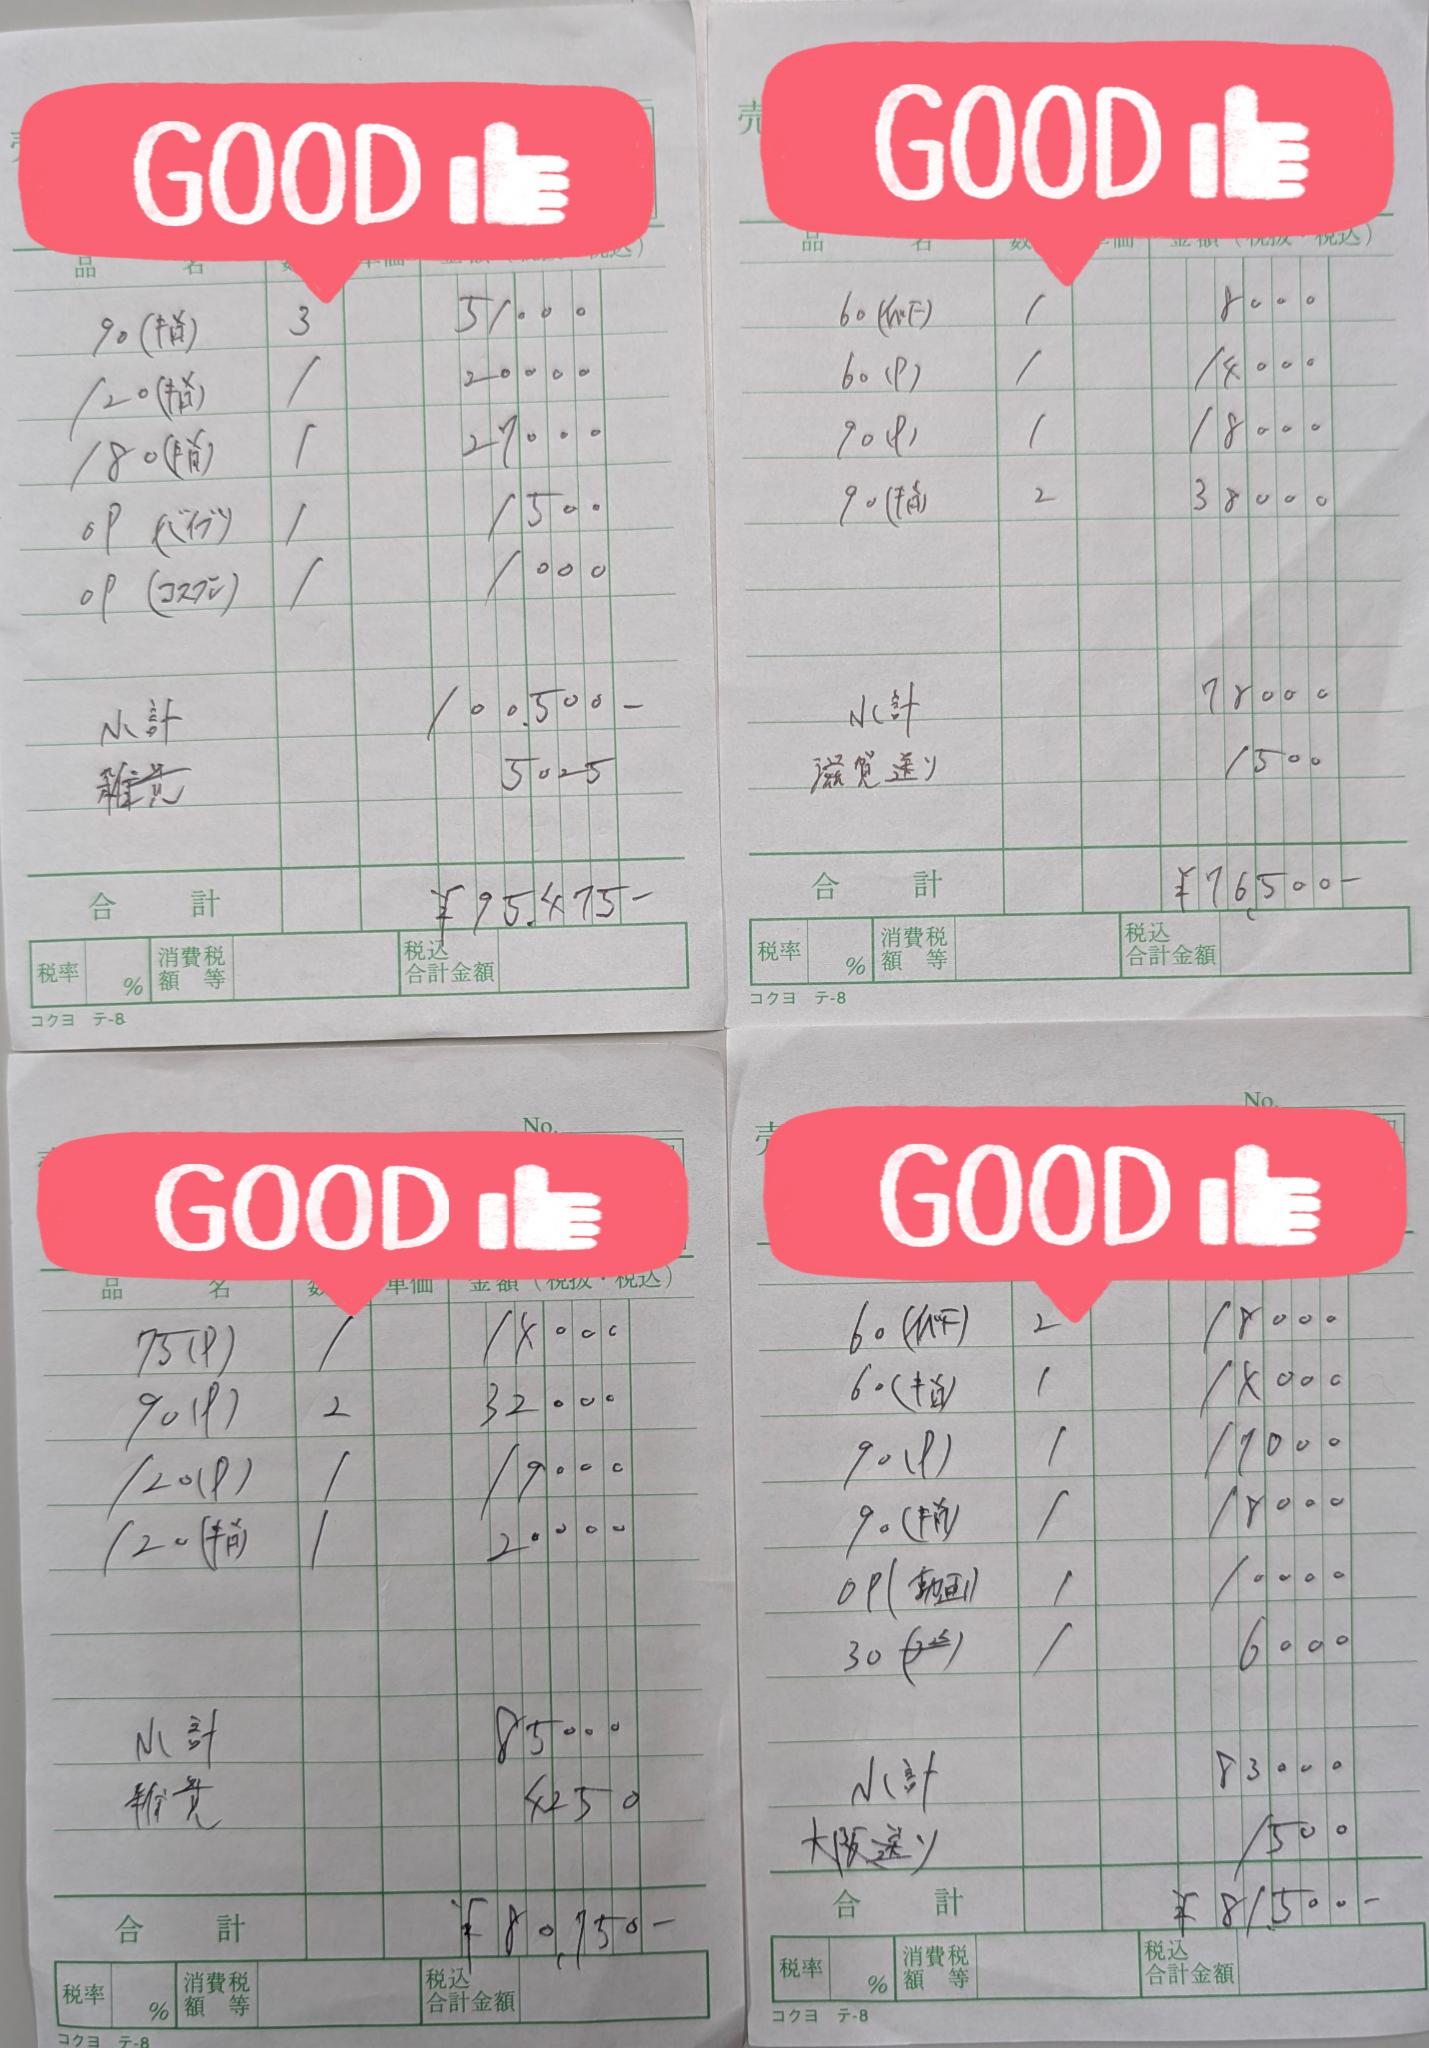 GOOD
品 名 単価 金額(税抜・税込)
90(指) 3 51000
120(指) 1 20000
180(指) 1 27000
OP (バイブ) 1 1500
OP (コスプレ) 1 1000
小計 100.500-
雑費 5025
合計 ¥95.475-
税率 % 消費税額等 税込合計金額
コクヨ テ-8
売
GOOD
品 名 数 単価 金額(税抜・税込)
60( 1 8000
60(P) 1 14000
90(P) 1 18000
90(指) 2 38000
小計 78000
滋賀送り 1500
合計 ¥76,500-
税率 % 消費税額等 税込合計金額
コクヨ テ-8
No.
GOOD
品 名 数 単価 金額(税抜・税込)
75(P) 1 14000
90(P) 2 32000
120(P) 1 19000
120(指) 1 20000
小計 85000
雑費 4250
合計 ¥80,750-
税率 % 消費税額等 税込合計金額
コクヨ テ-8
No.
売
GOOD
60( 2 18000
60(指) 1 14000
90(P) 1 17000
90(指) 1 18000
OP(動画) 1 10000
30( 1 6000
小計 83000
大阪送り 1500
合計 ¥81,500-
税率 % 消費税額等 税込合計金額
コクヨ テ-8